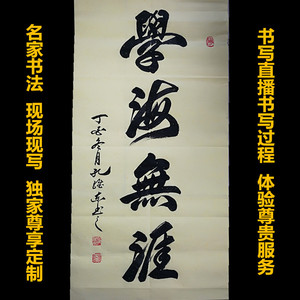 书写直播书写过程 体验尊贵服务
學海無涯
丁酉冬月孔德東書之
名家书法 现场现写 独家尊享定制